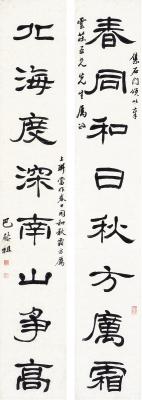 春同和日秋方厲霜
北海度深南山爭高
集石門頌
雲五兄先生屬
上聯當作春日同和秋霜方厲
巴慰祖